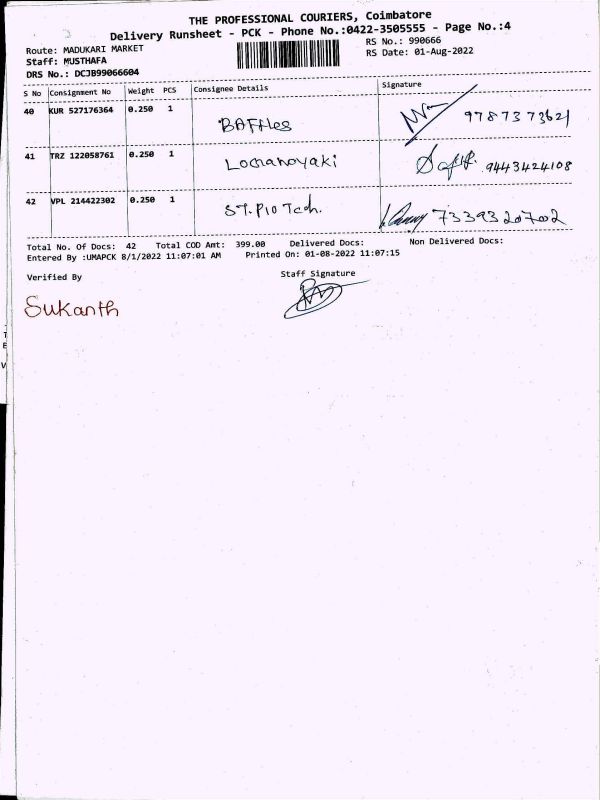 THE PROFESSIONAL COURIERS, Coimbatore
Delivery Runsheet - PCK - Phone No.:0422-3505555 - Page No.:4
Route: MADUKARI MARKET
RS No.: 990666
Staff: MUSTHAFA
RS Date: 01-Aug-2022
DRS No.: DCJB99066604
S No Consignment No Weight PCS Consignee Details Signature
40 KUR 527176364 0.250 1 BAFFles 9787373621
41 TRZ 122058761 0.250 1 Loganayaki 9443424108
42 VPL 214422302 0.250 1 ST.PIO Tech. 7339320702
Total No. Of Docs: 42 Total COD Amt: 399.00 Delivered Docs: Non Delivered Docs:
Entered By :UMAPCK 8/1/2022 11:07:01 AM Printed On: 01-08-2022 11:07:15
Verified By Staff Signature
Sukanth